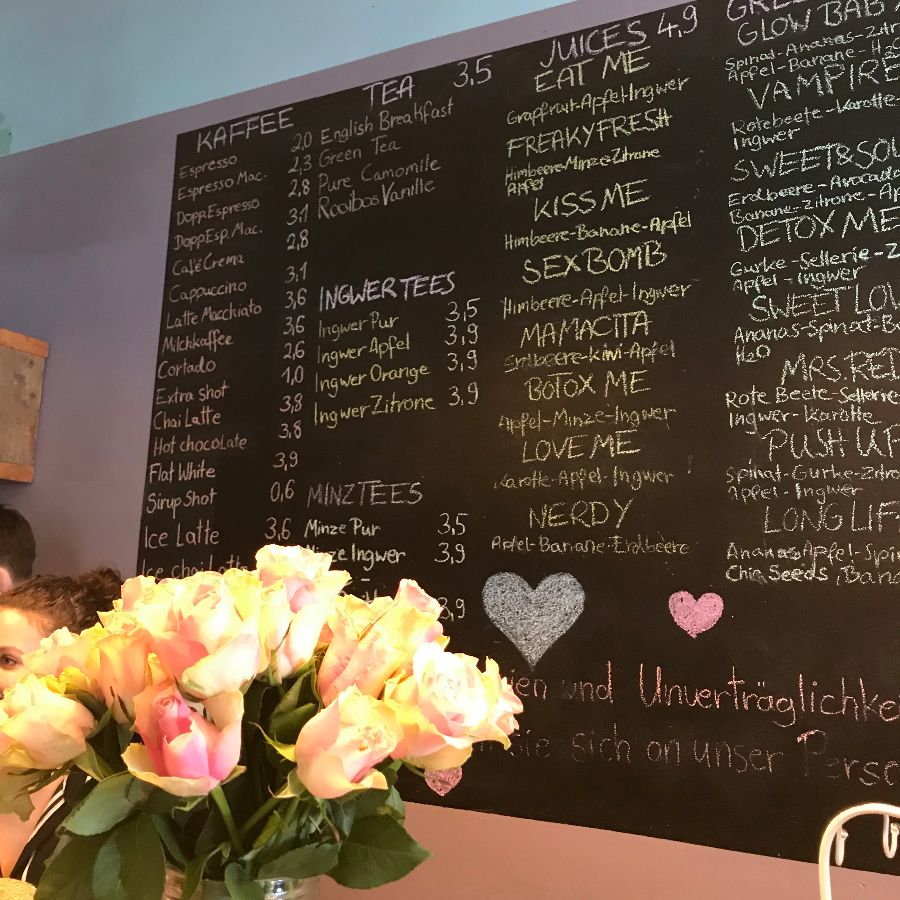 KAFFEE
Espresso 2,0
Espresso Mac. 2,3
Dopp.Espresso 2,8
Dopp.Esp.Mac. 3,1
Café Crema 2,8
Cappuccino 3,1
Latte Macchiato 3,6
Milchkaffee 3,6
Cortado 2,6
Extra shot 1,0
Chai Latte 3,8
Hot chocolate 3,8
Flat White 3,9
Sirup Shot 0,6
Ice Latte 3,6
Ice chai Latte
TEA 3,5
English Breakfast
Green Tea
Pure Camomile
Rooibos Vanille
INGWERTEES
Ingwer Pur 3,5
Ingwer Apfel 3,9
Ingwer Orange 3,9
Ingwer Zitrone 3,9
MINZTEES
Minze Pur 3,5
Minze Ingwer 3,9
3,9
JUICES 4,9
EAT ME
Grapfruit-Apfel-Ingwer
FREAKYFRESH
Himbeere-Minze-Zitrone
Apfel
KISS ME
Himbeere-Banane-Apfel
SEXBOMB
Himbeere-Apfel-Ingwer
MAMACITA
Erdbeere-Kiwi-Apfel
BOTOX ME
Apfel-Minze-Ingwer
LOVE ME
Karotte-Apfel-Ingwer
NERDY
Apfel-Banane-Erdbeere
GLOW BAB
Spinat-Ananas-Zitr
Apfel-Banane-H2O
VAMPIRE
Rotebeete-Karotte-
Ingwer
SWEET&SOU
Erdbeere-Avocado
Banane-Zitrone-Ap
DETOX ME
Gurke-Sellerie-Z
Apfel-Ingwer
SWEET LOV
Ananas-Spinat-Ba
H2O
MRS.RED
Rote Beete-Sellerie-
Ingwer-Karotte
PUSH UP
Spinat-Gurke-Zitro
Apfel-Ingwer
LONG LIF
Ananas Apfel-Spin
Chia Seeds, Bana
und Unverträglichke
Sie sich an unser Perso